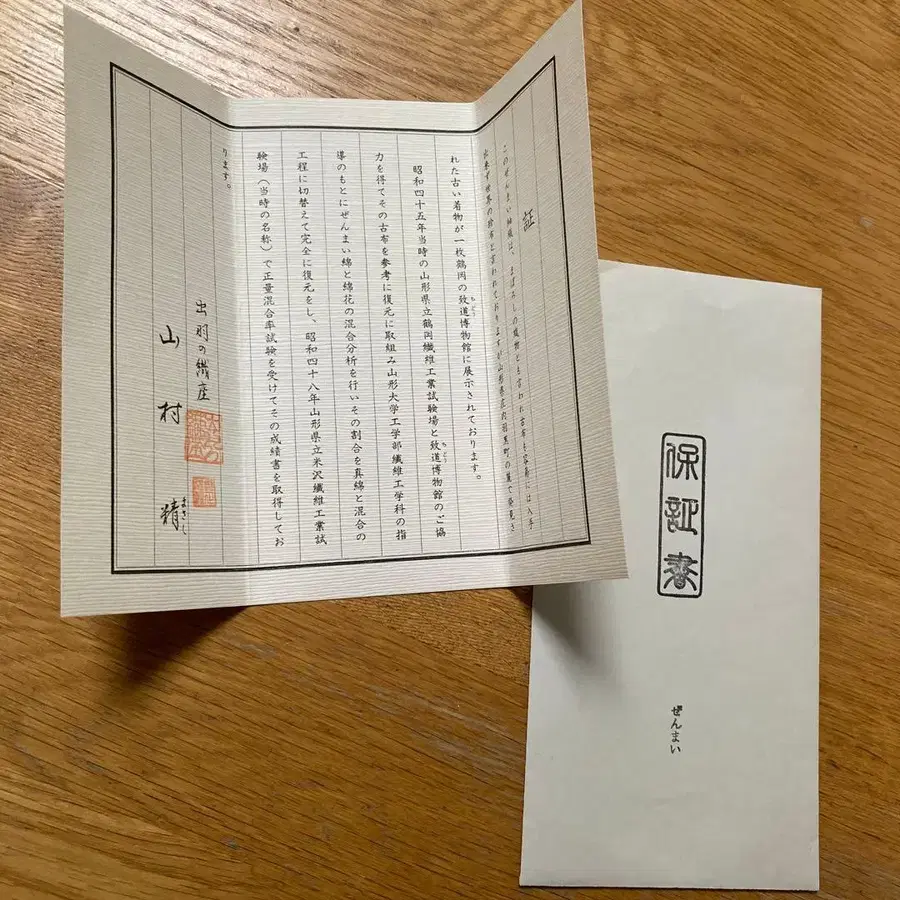 証
このぜんまい紬織は、まぼろしの織物とも言われ古布も容易には入手
出来ず世界の珍布と言われておりますが山形県庄内羽黒町の蔵で発見さ
れた古い着物が一枚鶴岡の致道博物館に展示されております。
昭和四十五年当時の山形県立鶴岡繊維工業試験場と致道博物館のご協
力を得てその古布を参考に復元に取組み山形大学工学部繊維工学科の指
導のもとにぜんまい綿と綿花の混合分析を行いその割合を真綿と混合の
工程に切替えて完全に復元をし、昭和四十八年山形県立米沢繊維工業試
験場(当時の名称)で正量混合率試験を受けてその成績書を取得してお
ります。
出羽の織座
山村 精
まさし
保証書
ぜんまい